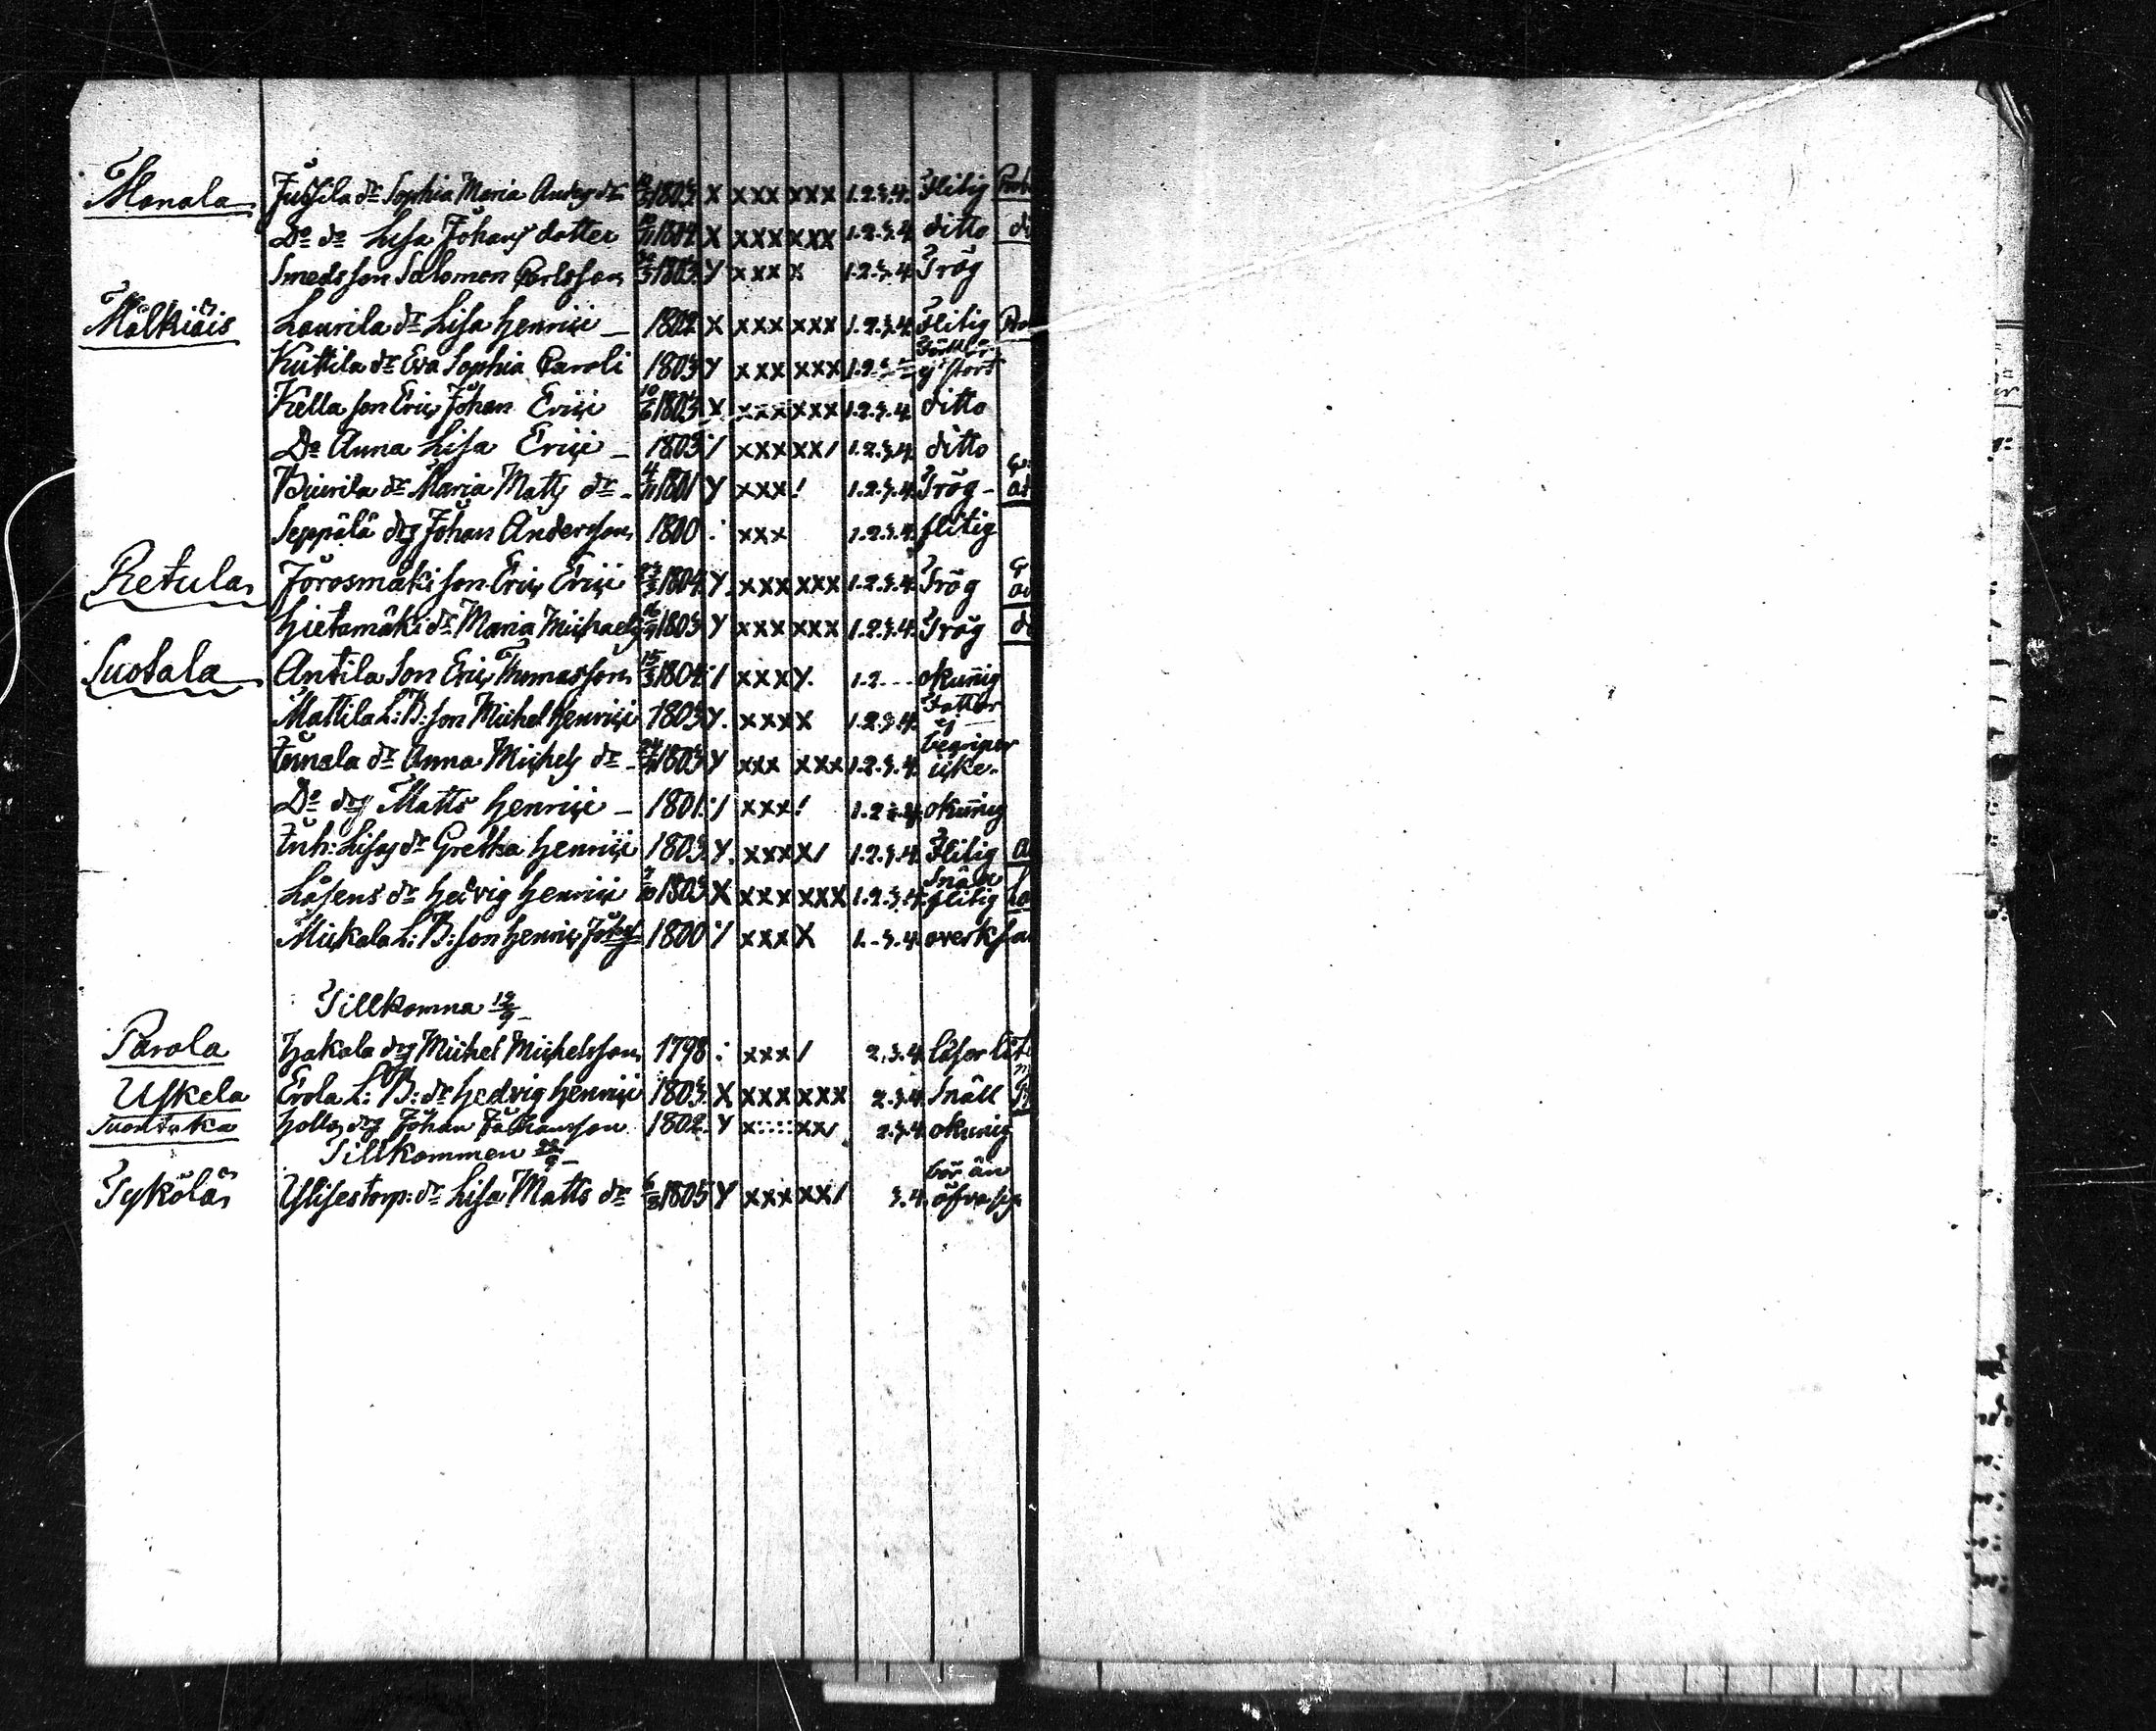 Monala Jussila dr Sophia Maria Anders dr 1803 X xxx xxx 1.2.3.4. Flitig
Do do Lisa Johans dotter 1804 X xxx xxx 1.2.3.4 ditto
Smedsson Salomon Carlsson 1803 Y xxx x 1.2.3.4 Trög
Mälkiäis Laurila dr Lisa Henrici – 1802 X xxx xxx 1.2.3.4 Flitig
Kuttila dr Eva Sophia Caroli 1803 Y xxx xxx 1.2.3 ej stort
Kella son Eric Johan Erici 10/6 1803 x xxx xxx 1.2.3.4. ditto
Do Anna Lisa Erici – 1803 ./ xxx xx/ 1.2.3.4. ditto
dr Maria Matts dr – 1801 Y xxx ! 1.2.3.4. Trög –
Seppälä drg Johan Andersson 1800 : xxx 1.2.3.4. flitig
Retula Jörosmäki son Eric Erici 1804 Y. xxx xxx 1.2.3.4. Trög
Hietamäki dr Maria Michaels 1803 Y xxx xxx 1.2.3.4. Trög
Suotala Antila Son Eric Thomasson 15/3 1804 ./ xxx Y. 1.2 - - - okunig
Mattila L: B: son Michel Henrici 1803 Y. xxx x 1.2.3.4. Fattar
ej
begriper
dr Anna Michels dr – 1803 Y xxx xxx 1.2.3.4. icke.
Do drg Matts Henrici – 1801 ./ xxx ! 1.2.3.4. okunig
Inh: Lisas dr Gretha Henrici 1803. Y. xxx x/ 1.2.3.4. Flitig
Snäll
Låsens dr Hedvig Henrici 1803 X xxx xxx 1.2.3.4. flitig
Mickala L: B: son Henric Johs 1800 ./ xxx X 1.-3.4. overksa
Tillkomna 19/9 –
Parola Hakala drg Michel Michelsson 1798 : xxx / 2.3.4. läser lite
Uskela Erola L: B: dr Hedvig Henrici 1803. X xxx xxx 2.3.4. Snäll
Suontaka Hollo drg Johan Johansson 1802. Y x:::: xx/ 2.3.4. okunig
Tillkommen –
bör än
Tykölä Ylisestorp: dr Lisa Matts dr 1805 Y xxx xx/ 3.4. öfva sig